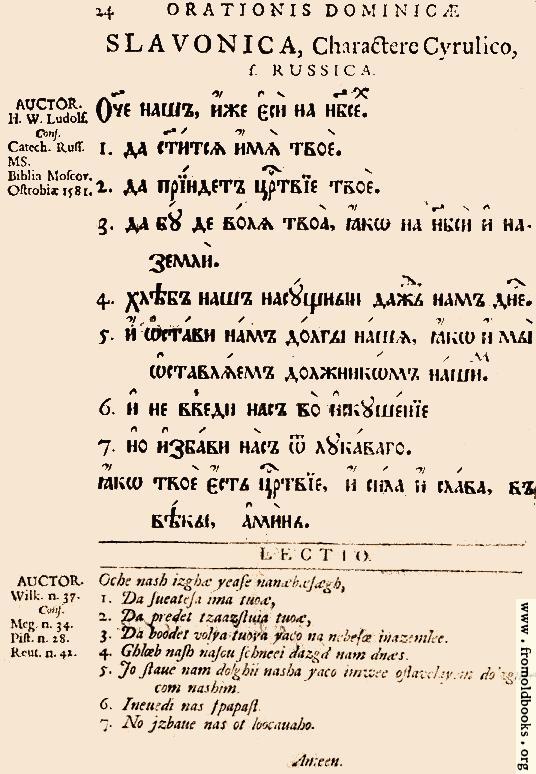 24 ORATIONIS DOMINICÆ
SLAVONICA, Charactere Cyrulico,
ſ. RUSSICA.
AUCTOR.
H. W. Ludolf.
Conf.
Catech. Ruſſ.
MS.
Biblia Moſcov.
Oſtrobiæ 1581.
Ѻч҃е нашъ, и҆́же є҆сѝ на нб҃сѐ.
1. да ст҃и́тсѧ и҆́мѧ твоѐ.
2. да прїи́детъ цр҃твїе твоѐ.
3. да бꙋ́ де во́лѧ твоѧ̀, ꙗ҆́кѡ на нб҃сѝ и҆ на-
землѝ.
4. хлѣ́бъ нашъ насꙋ́щныи да́жь намъ дне҃.
5. и҆ ѡ҆ста́ви на́мъ до́лгы на́шѧ, ꙗ҆́кѡ и҆ мы̀
ѡ҆ставлѧ́емъ должникѡ́мъ на́шиⷨ.
6. и҆ не введи на́съ во и҆скꙋше́нїе
7. но и҆зба́ви на́съ ѿ лꙋка́ваго.
ꙗ҆́кѡ твоѐ є҆́сть цр҃твїе, и҆ си́ла и҆ сла́ва, въ
вѣ́кы, а҆ми́нь.
LECTIO.
AUCTOR.
Wilk. n. 37.
Conf.
Meg. n. 34.
Piſt. n. 28.
Reut. n. 42.
Oche nash izghæ yeaſe
1. Da ſueateſa ima tuoæ,
2. Da predet tuoæ,
3. Da boodet volya tuoya yaco na nebeſæ inazemlee.
4. Ghlæb naſh naſou ſchneei dazgd nam dnæs.
5. Jo ſtaue nam dolghii nasha yaco imwee
com nashim.
6. Ineuedi nas ſpapaſt.
7. No jzbaue nas ot loocauaho.
Ameen.
www.fromoldbooks.org